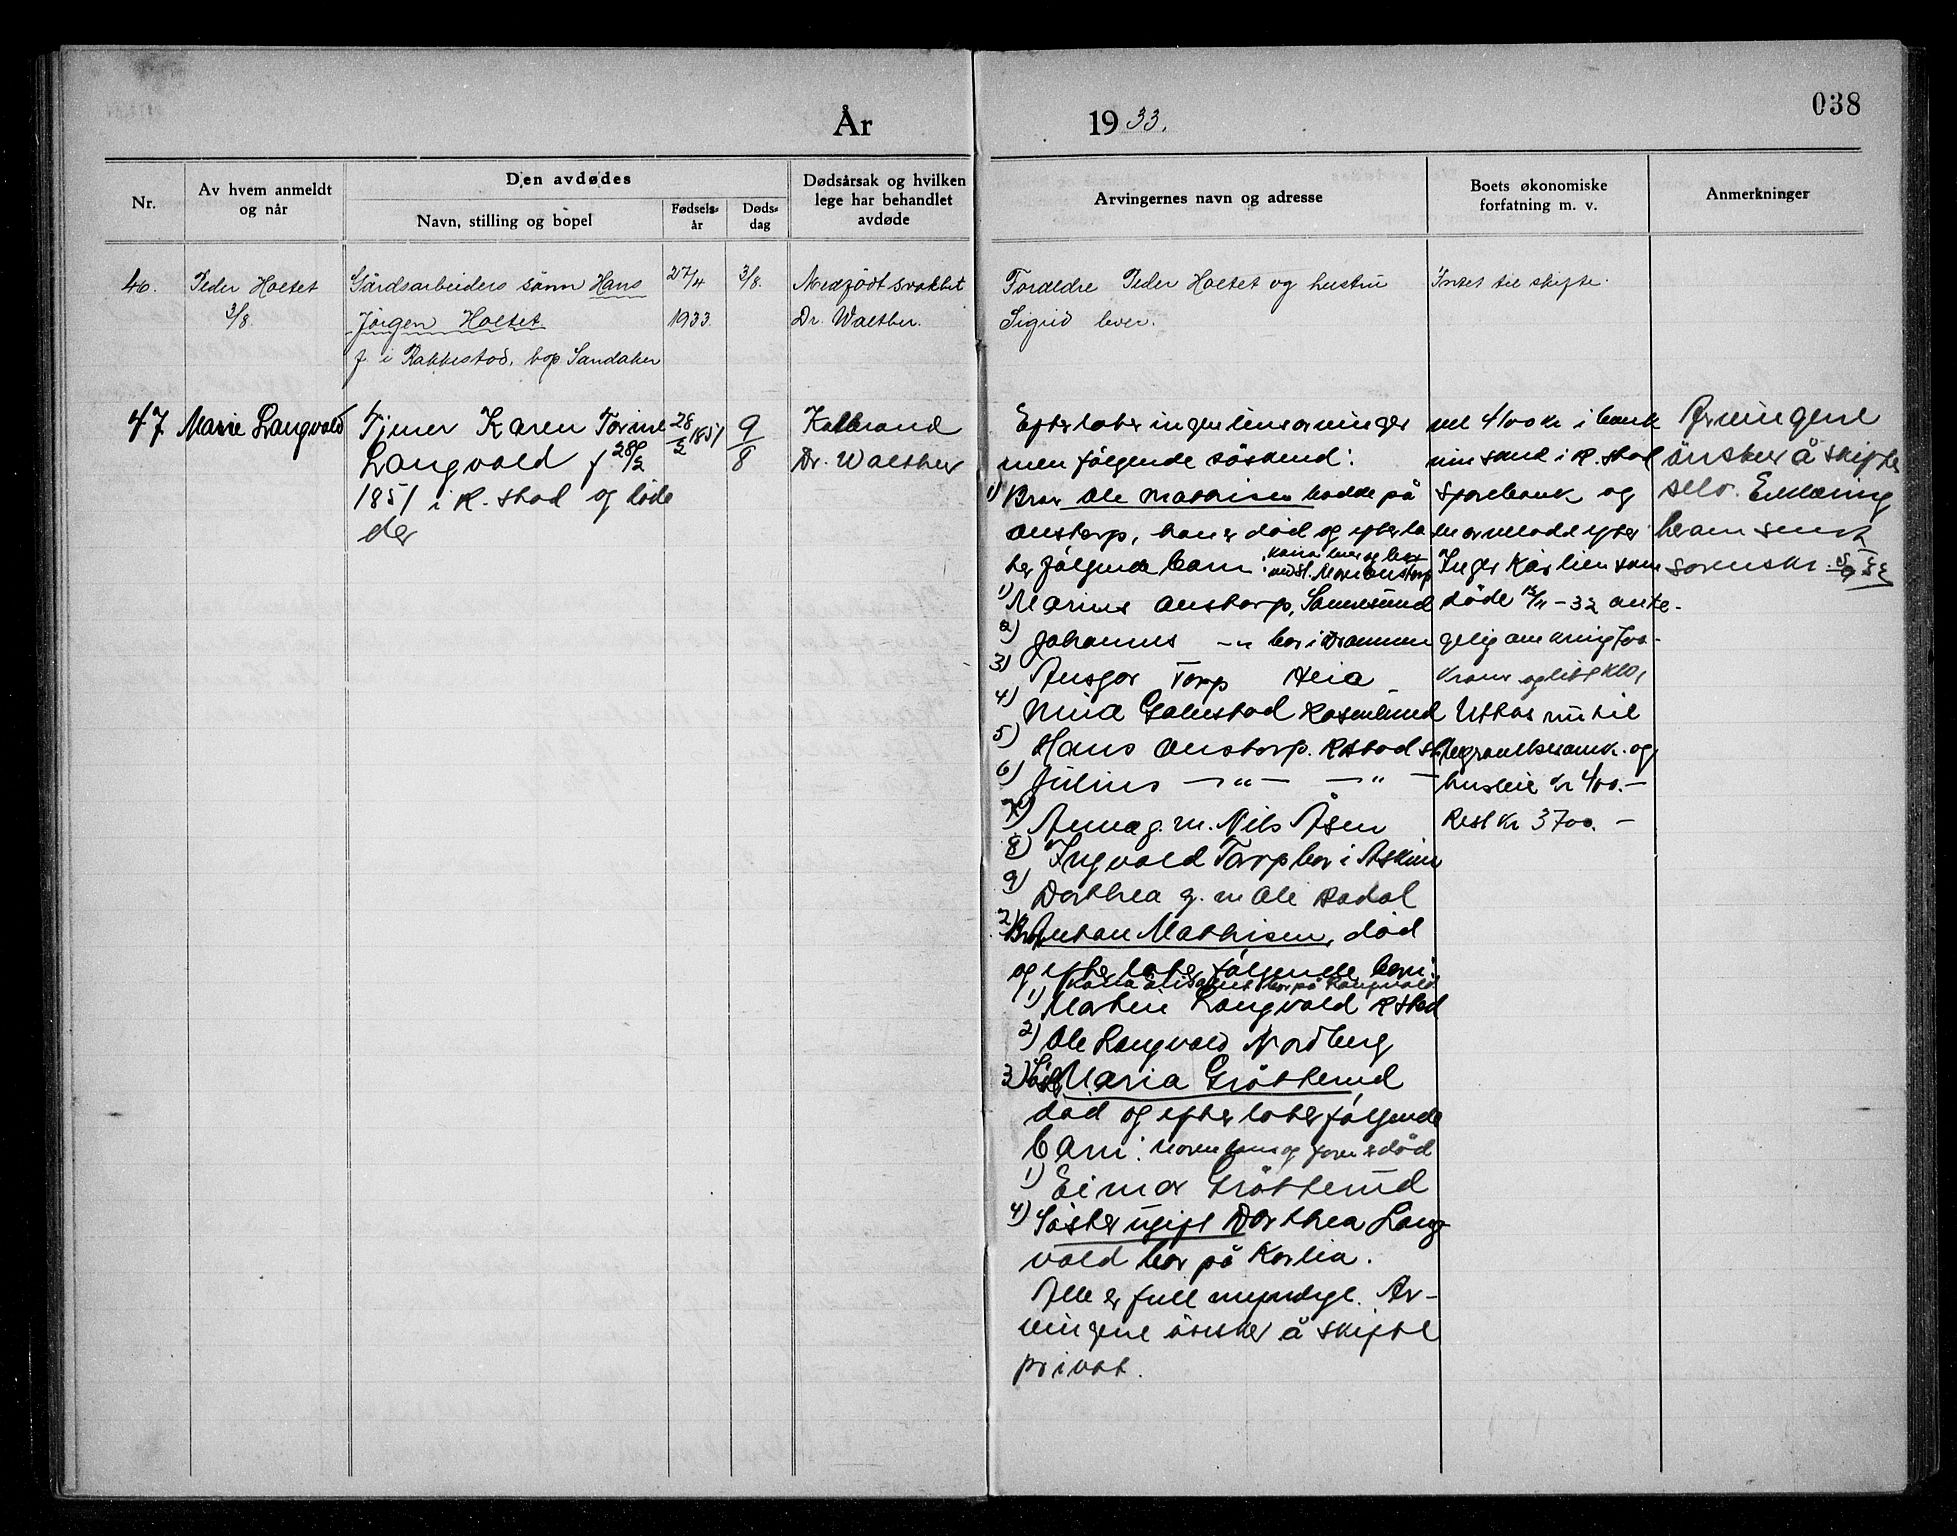 038
År 1933.
Nr.
Av hvem anmeldt
og når
Den avdødes
Navn, stilling og bopel
Fødsels-
år
Døds-
dag
Dødsårsak og hvilken
lege har behandlet
avdøde
Arvingernes navn og adresse
Boets økonomiske
forfatning m. v.
Anmerkninger
46.
Peder Holtet
3/8.
Gårdsarbeiders sønn Hans
Jörgen Holtet
f i Rakkestad, bop Sandaker
27/4
1933
3/8.
Medfödt svakhet
Dr. Walther.
Foreldre Peder Holtet og hustru
Sigrid lever.
Intet til skifte.
47
Marie Langvold
Tjener Karen Torine
Langvold f 28/2
1851 i R. stad og löde
der
28/2 1851
9/8
Koldbrand
Dr. Walther
Efterlater ingen livsarvinger
men følgende söskend:
1) Bror Ole Mathisen bodde på
Onstorp, han er död og efterla
ter følgende barn
1) Marius Onstorp, Sannesund
2) Johannes -"- bor i Drammen
3) Ansgar Torp Heia
4) Mina Gautestad Rosenlund
5) Hans Onstorp. R.stad st
6) Julius -"- -"-
7) Anna g. m. Nils Åsen
8) Ingvald Torp bor i Askim
9) Dorthea g. m Ole Rodal
2) Bror Anton Mathisen, död
og efterlater følgende barn
bor på Langvold
1) Martin Langvold R stad
2) Ole Langvold Nordberg
3) Søst. Maria Grötterud,
död og efterlater følgende
barn: død
1) Einar Grötterud
4) Søster ugift Dorthea Lang-
vold bor på Korlia.
Alle er full myndige. Ar-
vingene önsker å skifte
privat.
4100 kr i bank
i R. stad
Sparebank og
efter
Inger Karlien som
döde 12/11 - 32
omkring 700-
kroner og litt klær
Uttas nu til
begravelsesomk. og
husleie kr 400.-
Rest kr 3700.-
Arvingene
önsker å skifte
selv. Erklæring
herom sendt
sorenskr.